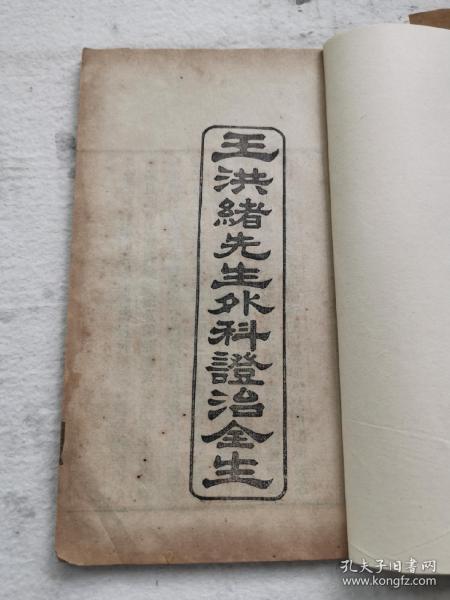 王洪緒先生外科證治全生
孔夫子旧书网
www.kongfz.com